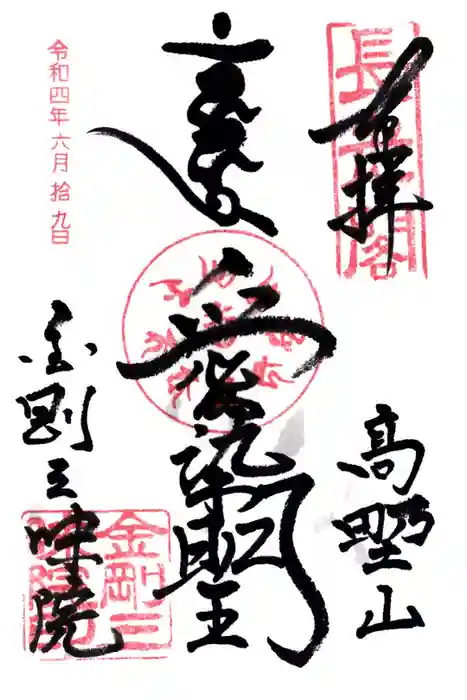 奉拝
高野山
愛染明王
令和四年六月拾九日
金剛三昧院
金剛三
昧院